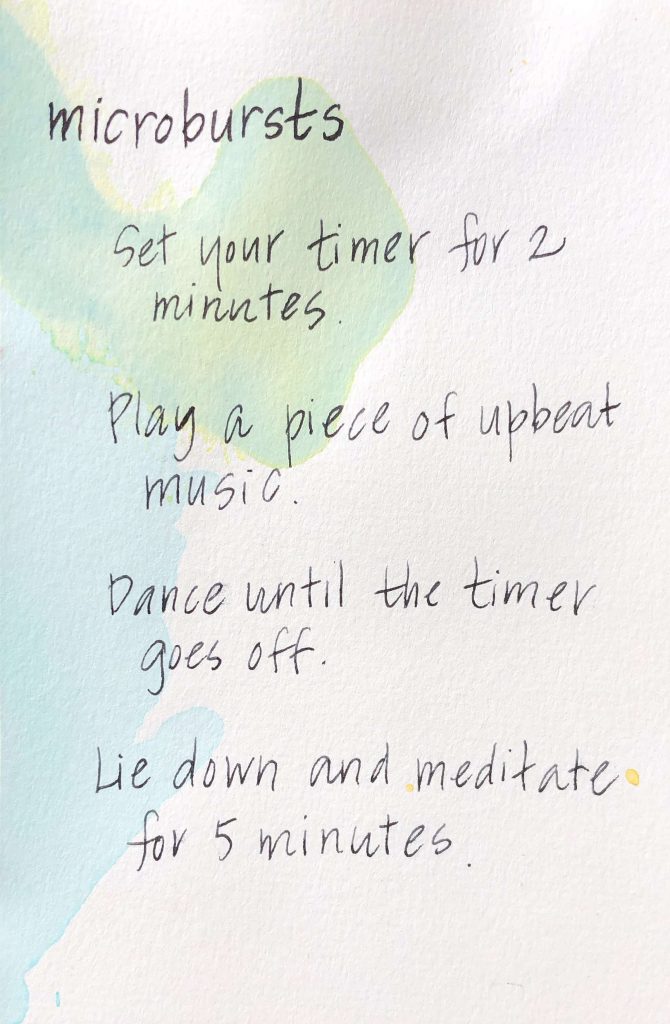 microbursts
Set your timer for 2
minutes.
Play a piece of upbeat
music.
Dance until the timer
goes off.
Lie down and meditate
for 5 minutes.